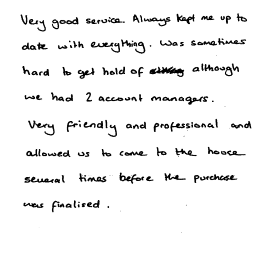 Very good service. Always kept me up to
date with everything. Was sometimes
hard to get hold of although
we had 2 account managers.
Very friendly and professional and
allowed us to come to the house
several times before the purchase
was finalised.